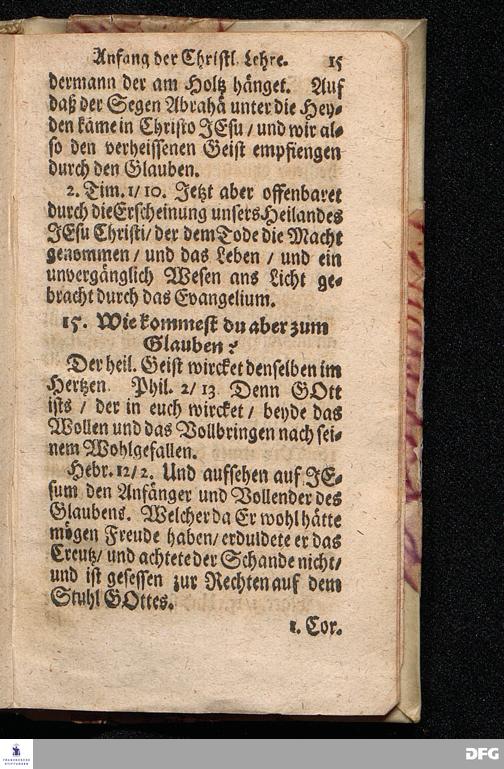 Anfang der Christl. Lehre. 15
dermann der am Holtz hänget. Auf
daß der Segen Abrahä unter die Hey-
den käme in Christo JEsu / und wir al-
so den verheissenen Geist empfiengen
durch den Glauben.
2. Tim. 1/ 10. Jetzt aber offenbaret
durch die Erscheinung unsers Heilandes
JEsu Christi/ der dem Tode die Macht
genommen / und das Leben / und ein
unvergänglich Wesen ans Licht ge-
bracht durch das Evangelium.
15. Wie kommest du aber zum
Glauben?
Der heil. Geist wircket denselben im
Hertzen. Phil. 2/ 13. Denn GOtt
ists / der in euch wircket / beyde das
Wollen und das Vollbringen nach sei-
nem Wohlgefallen.
Hebr. 12/ 2. Und aufsehen auf JE-
sum den Anfänger und Vollender des
Glaubens. Welcher da Er wohl hätte
mögen Freude haben/ erduldete er das
Creutz/ und achtete der Schande nicht/
und ist gesessen zur Rechten auf dem
Stuhl GOttes.
1. Cor.
FRANCKESCHE
STIFTUNGEN
DFG